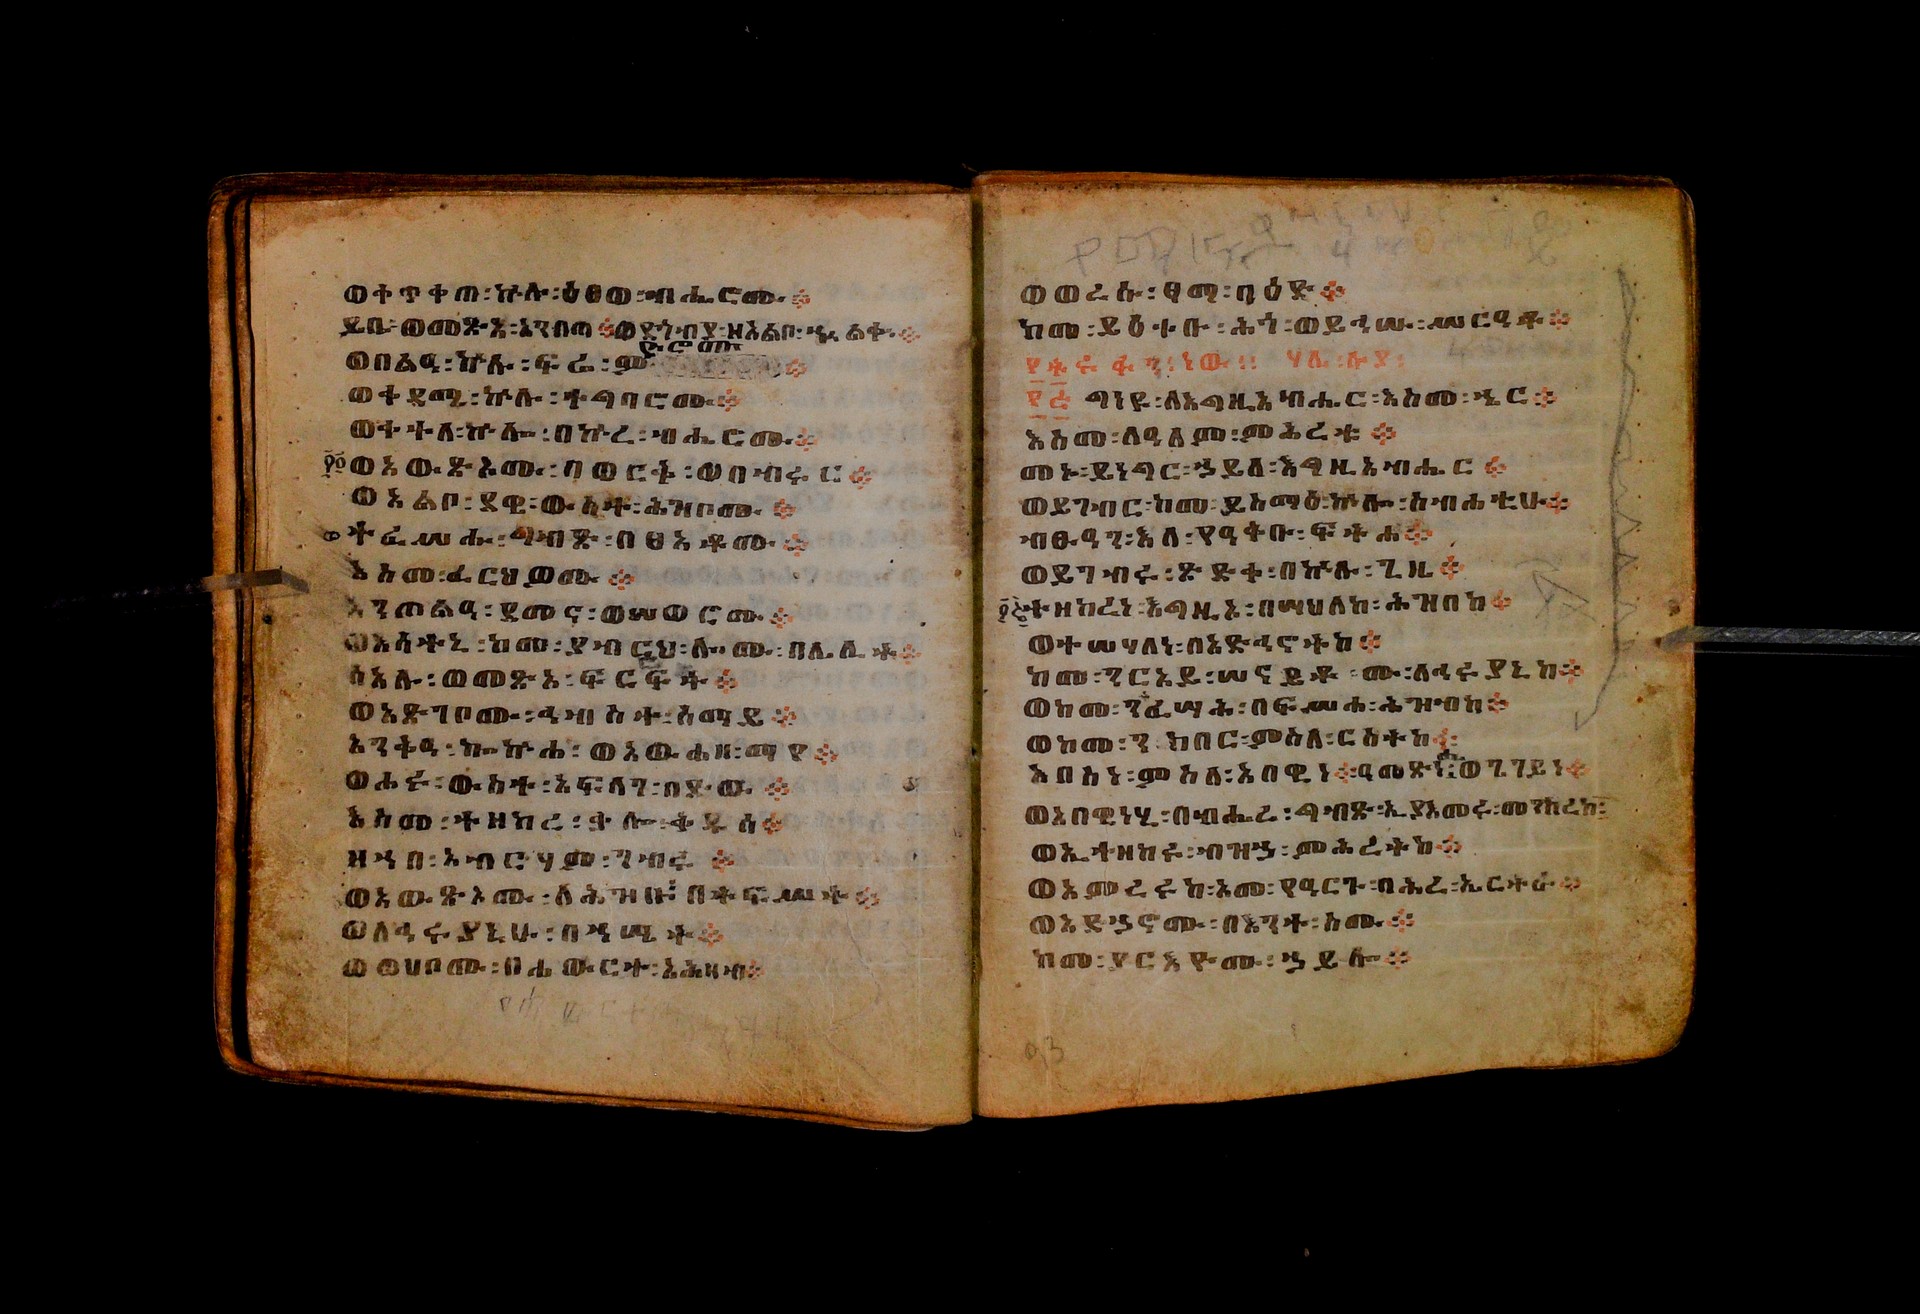 ወቀጥቀጠ፡ኵሉ፡ዕፀወ፡ብሔርሙ፨
ይቤ፡ወመጽአ፡አንበጣ፨ወደጎብያ፡ዘአልቦ፡ኍልቈ፨
ወበልዓ፡ኵሉ፡ፍሬ፡ምድሮሙ፨
ወቀደሚ፡ኵሉ፡ተግባሮሙ፨
ወቀተለ፡ኵሎ፡በኵረ፡ብሔርሙ፨
ወአውጽኦሙ፡በወርቅ፡ወበብሩር፨
ወአልቦ፡ደዌ፡ውስተ፡ሕዝቦሙ፨
ተፈሥሑ፡ግብጽ፡በፀአቶሙ፨
እስመ፡ፈርህዎሙ፨
አንጦልዓ፡ደመና፡ወሠወሮሙ፨
ወእሳትኒ፡ከመ፡ያብርህ፡ሎሙ፡በሌሊት፨
ሰአሉ፡ወመጽአ፡ፍርፍርት፨
ወአጽገቦሙ፡ኅብስተ፡ሰማይ፨
አንቅዓ፡ኰኵሐ፡ወአውሐዘ፡ማየ፨
ወሖሩ፡ውስተ፡አፍላገ፡በድው፨
እስመ፡ተዘከረ፡ቃሎ፡ቅዱሰ፨
ዘኀበ፡አብርሃም፡ገብሩ፨
ወአውጽኦሙ፡ለሕዝቡ፡በትፍሥሕት፨
ወለኅሩያኒሁ፡በኀሤት፨
ወወሀቦሙ፡በሐውርተ፡አሕዛብ፨
ወወረሱ፡ፃማ፡ባዕድ፨
ከመ፡ይዕቀቡ፡ሕጎ፡ወይኅሡ፡ሥርዓቶ፨
ሃሌሉያ፡
፻፭ ግነዩ፡ለእግዚአብሔር፡እስመ፡ኄር፨
እስመ፡ለዓለም፡ምሕረቱ፨
መኑ፡ይነግር፡ኃይለ፡እግዚአብሔር፨
ወይገብር፡ከመ፡ይሰማዕ፡ኵሎ፡ስብሐቲሁ፨
ብፁዓን፡እለ፡የዓቅቡ፡ፍትሐ፨
ወይገብሩ፡ጽድቀ፡በኵሉ፡ጊዜ፨
ተዘከረነ፡እግዚኦ፡በሣህለከ፡ሕዝበከ፨
ወተሣሃለነ፡በአድኅኖትከ፨
ከመ፡ንርአይ፡ሠናይቶሙ፡ለኅሩያኒከ፨
ወከመ፡ንፈሣሕ፡በፍሥሐ፡ሕዝብከ፨
ወከመ፡ንክበር፡ምስለ፡ርስትከ፨
አበስነ፡ምስለ፡አበዊነ፨ዓመጽነ፡ወጌገይነ፨
ወአበዊነሂ፡በብሔረ፡ግብጽ፡ኢያእመሩ፡መንክረከ፡
ወኢተዘከሩ፡ብዝኃ፡ምሕረትከ፨
ወአምረሩከ፡እመ፡የዓርጉ፡በሕረ፡ኤርትራ፨
ወአድኃኖሙ፡በእንተ፡ስሙ፨
ከመ፡ያርእዮሙ፡ኃይሎ፨